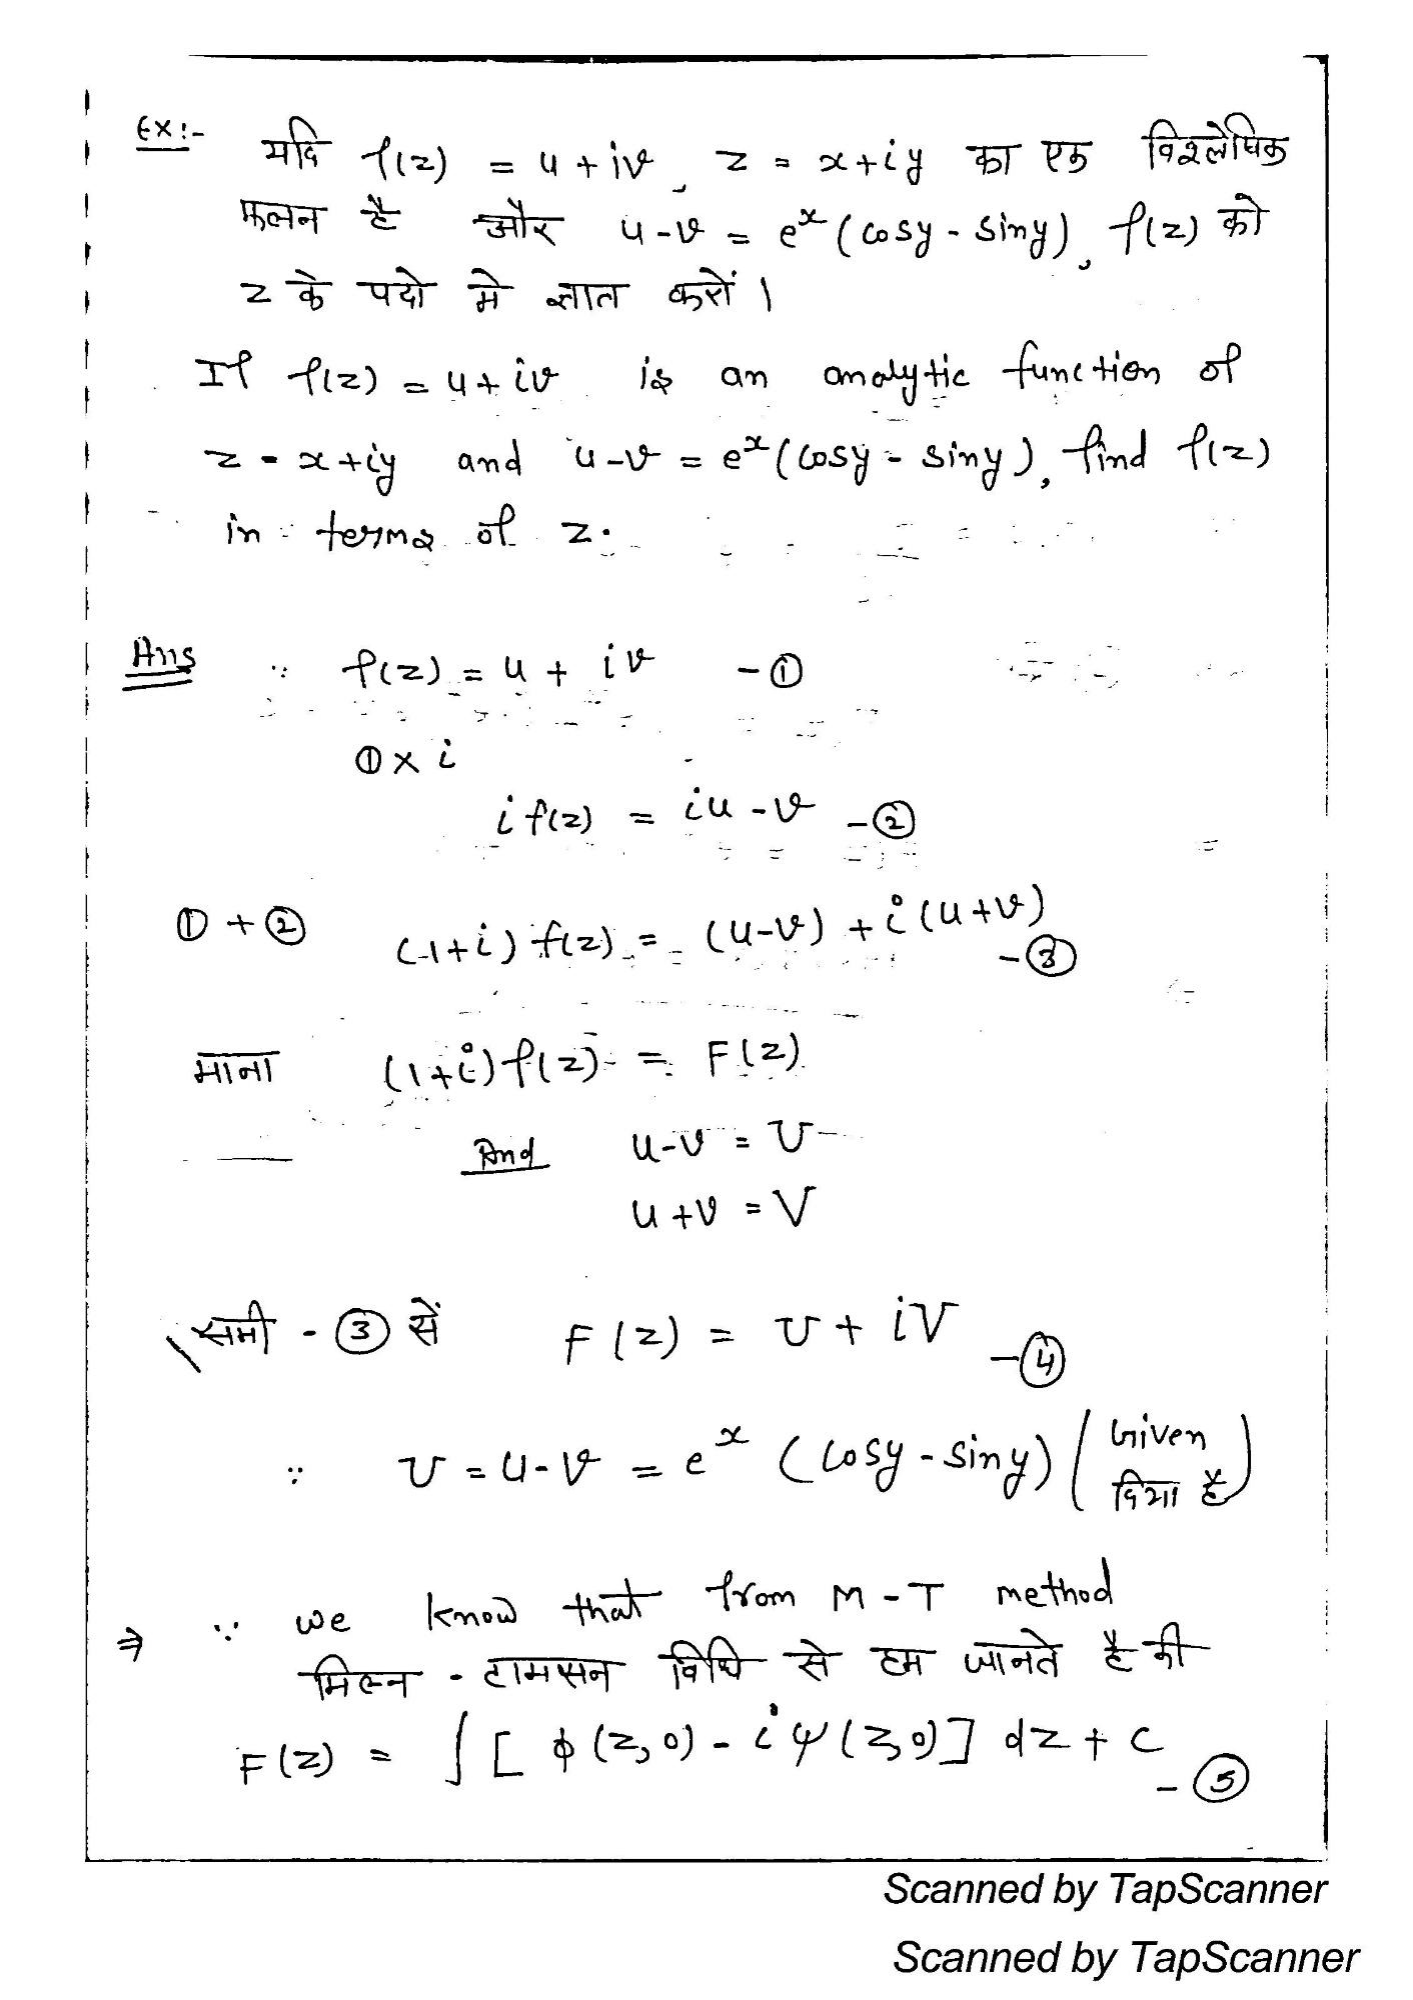 Ex:-
यदि f(z) = u + iv, z = x+iy का एक विश्लेषिक
फलन है और u-v = e^x (cosy - siny), f(z) को
z के पदो मे ज्ञात करों।
If f(z) = u + iv is an analytic function of
z = x+iy and u-v = e^x (cosy - siny), find f(z)
in terms of z.
Ans ∵ f(z) = u + iv - ①
① x i
i f(z) = iu - v - ②
① + ② (1+i) f(z) = (u-v) + i(u+v)
- ③
माना (1+i) f(z) = F(z)
And u-v = U
u+v = V
समी - ③ सें F(z) = U + iV - ④
∵ U = u-v = e^x (cosy - siny) (Given
दिया है)
⇒ ∵ we know that from M-T method
मिल्न - टामसन विधि से हम जानते है की
F(z) = ∫[ϕ(z,0) - iψ(z,0)] dz + c
- ⑤
Scanned by TapScanner
Scanned by TapScanner